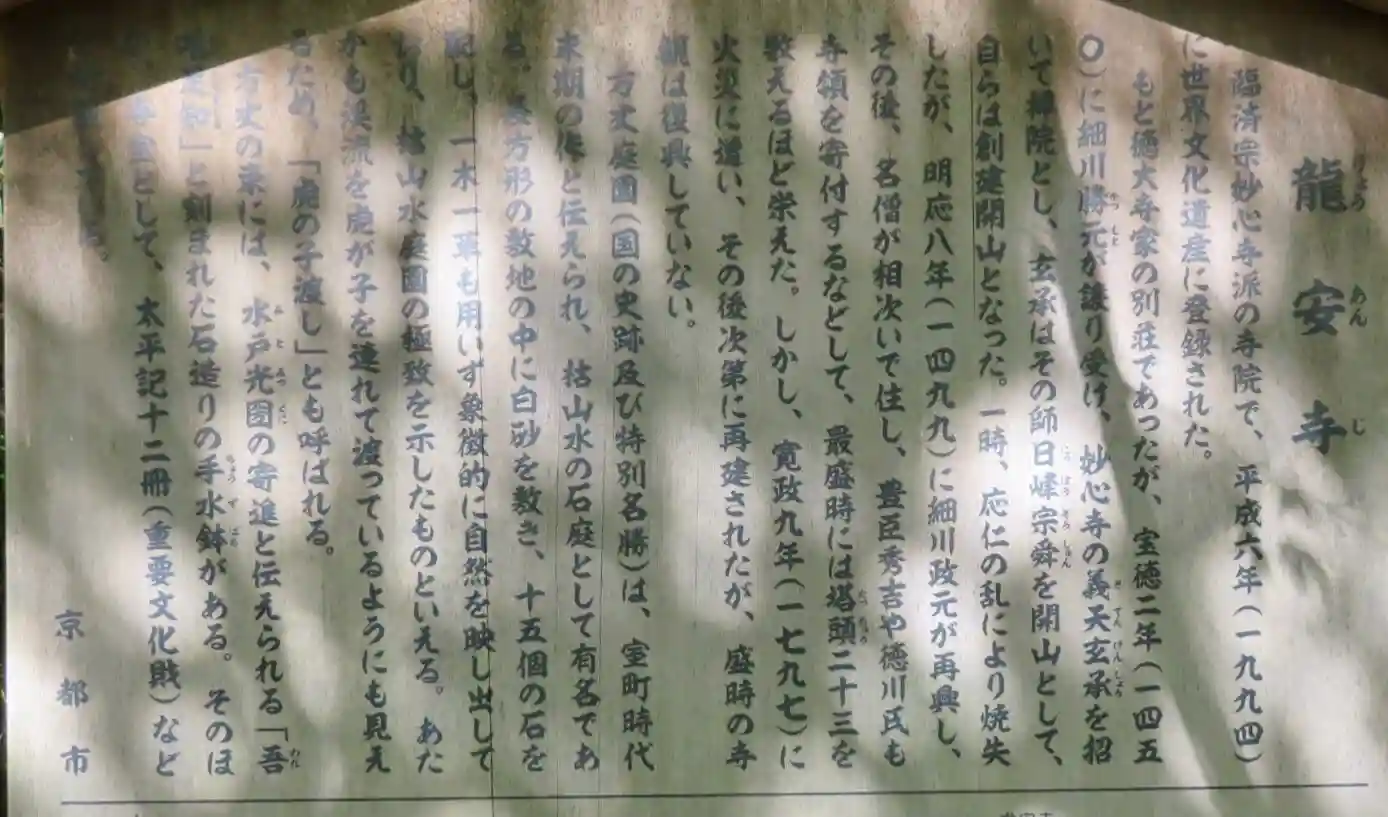 龍安寺
臨済宗妙心寺派の寺院で、平成六年(一九九四)
に世界文化遺産に登録された。
もと徳大寺家の別荘であったが、宝徳二年(一四五
〇)に細川勝元が譲り受け、妙心寺の義天玄承を招
いて禅院とし、玄承はその師日峰宗舜を開山として、
自らは創建開山となった。一時、応仁の乱により焼失
したが、明応八年(一四九九)に細川政元が再興し、
その後、名僧が相次いで住し、豊臣秀吉や徳川氏も
寺領を寄付するなどして、最盛時には塔頭二十三を
数えるほど栄えた。しかし、寛政九年(一七九七)に
火災に遭い、その後次第に再建されたが、盛時の寺
観は復興していない。
方丈庭園(国の史跡及び特別名勝)は、室町時代
末期の作と伝えられ、枯山水の石庭として有名であ
る。長方形の敷地の中に白砂を敷き、十五個の石を
配し、一木一草も用いず象徴的に自然を映し出して
おり、枯山水庭園の極致を示したものといえる。あた
かも渓流を虎が子を連れて渡っているようにも見え
るため、「虎の子渡し」とも呼ばれる。
方丈の東には、水戸光圀の寄進と伝えられる「吾
唯足知」と刻まれた石造りの手水鉢がある。そのほ
か、寺宝として、太平記十二冊(重要文化財)など
る。
京都市